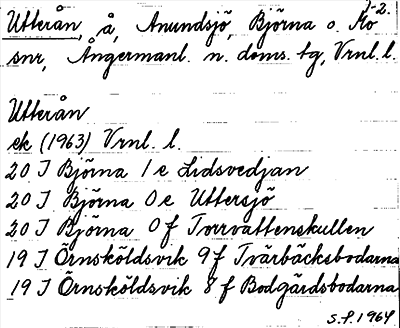 1-2.
Utterån, å, Anundsjö, Björna o. Ko
snr, Ångermanl. n. doms. tg, Vrnl. l.
Utterån
ek (1963) Vrnl. l.
20 J Björna 1 e Lidsvedjan
20 J Björna 0 e Uttersjö
20 J Björna 0 f Torrvattenskullen
19 J Örnsköldsvik 9 f Tvärbäcksbodarna
19 J Örnsköldsvik 8 f Bodgårdsbodarna
S.F. 1964